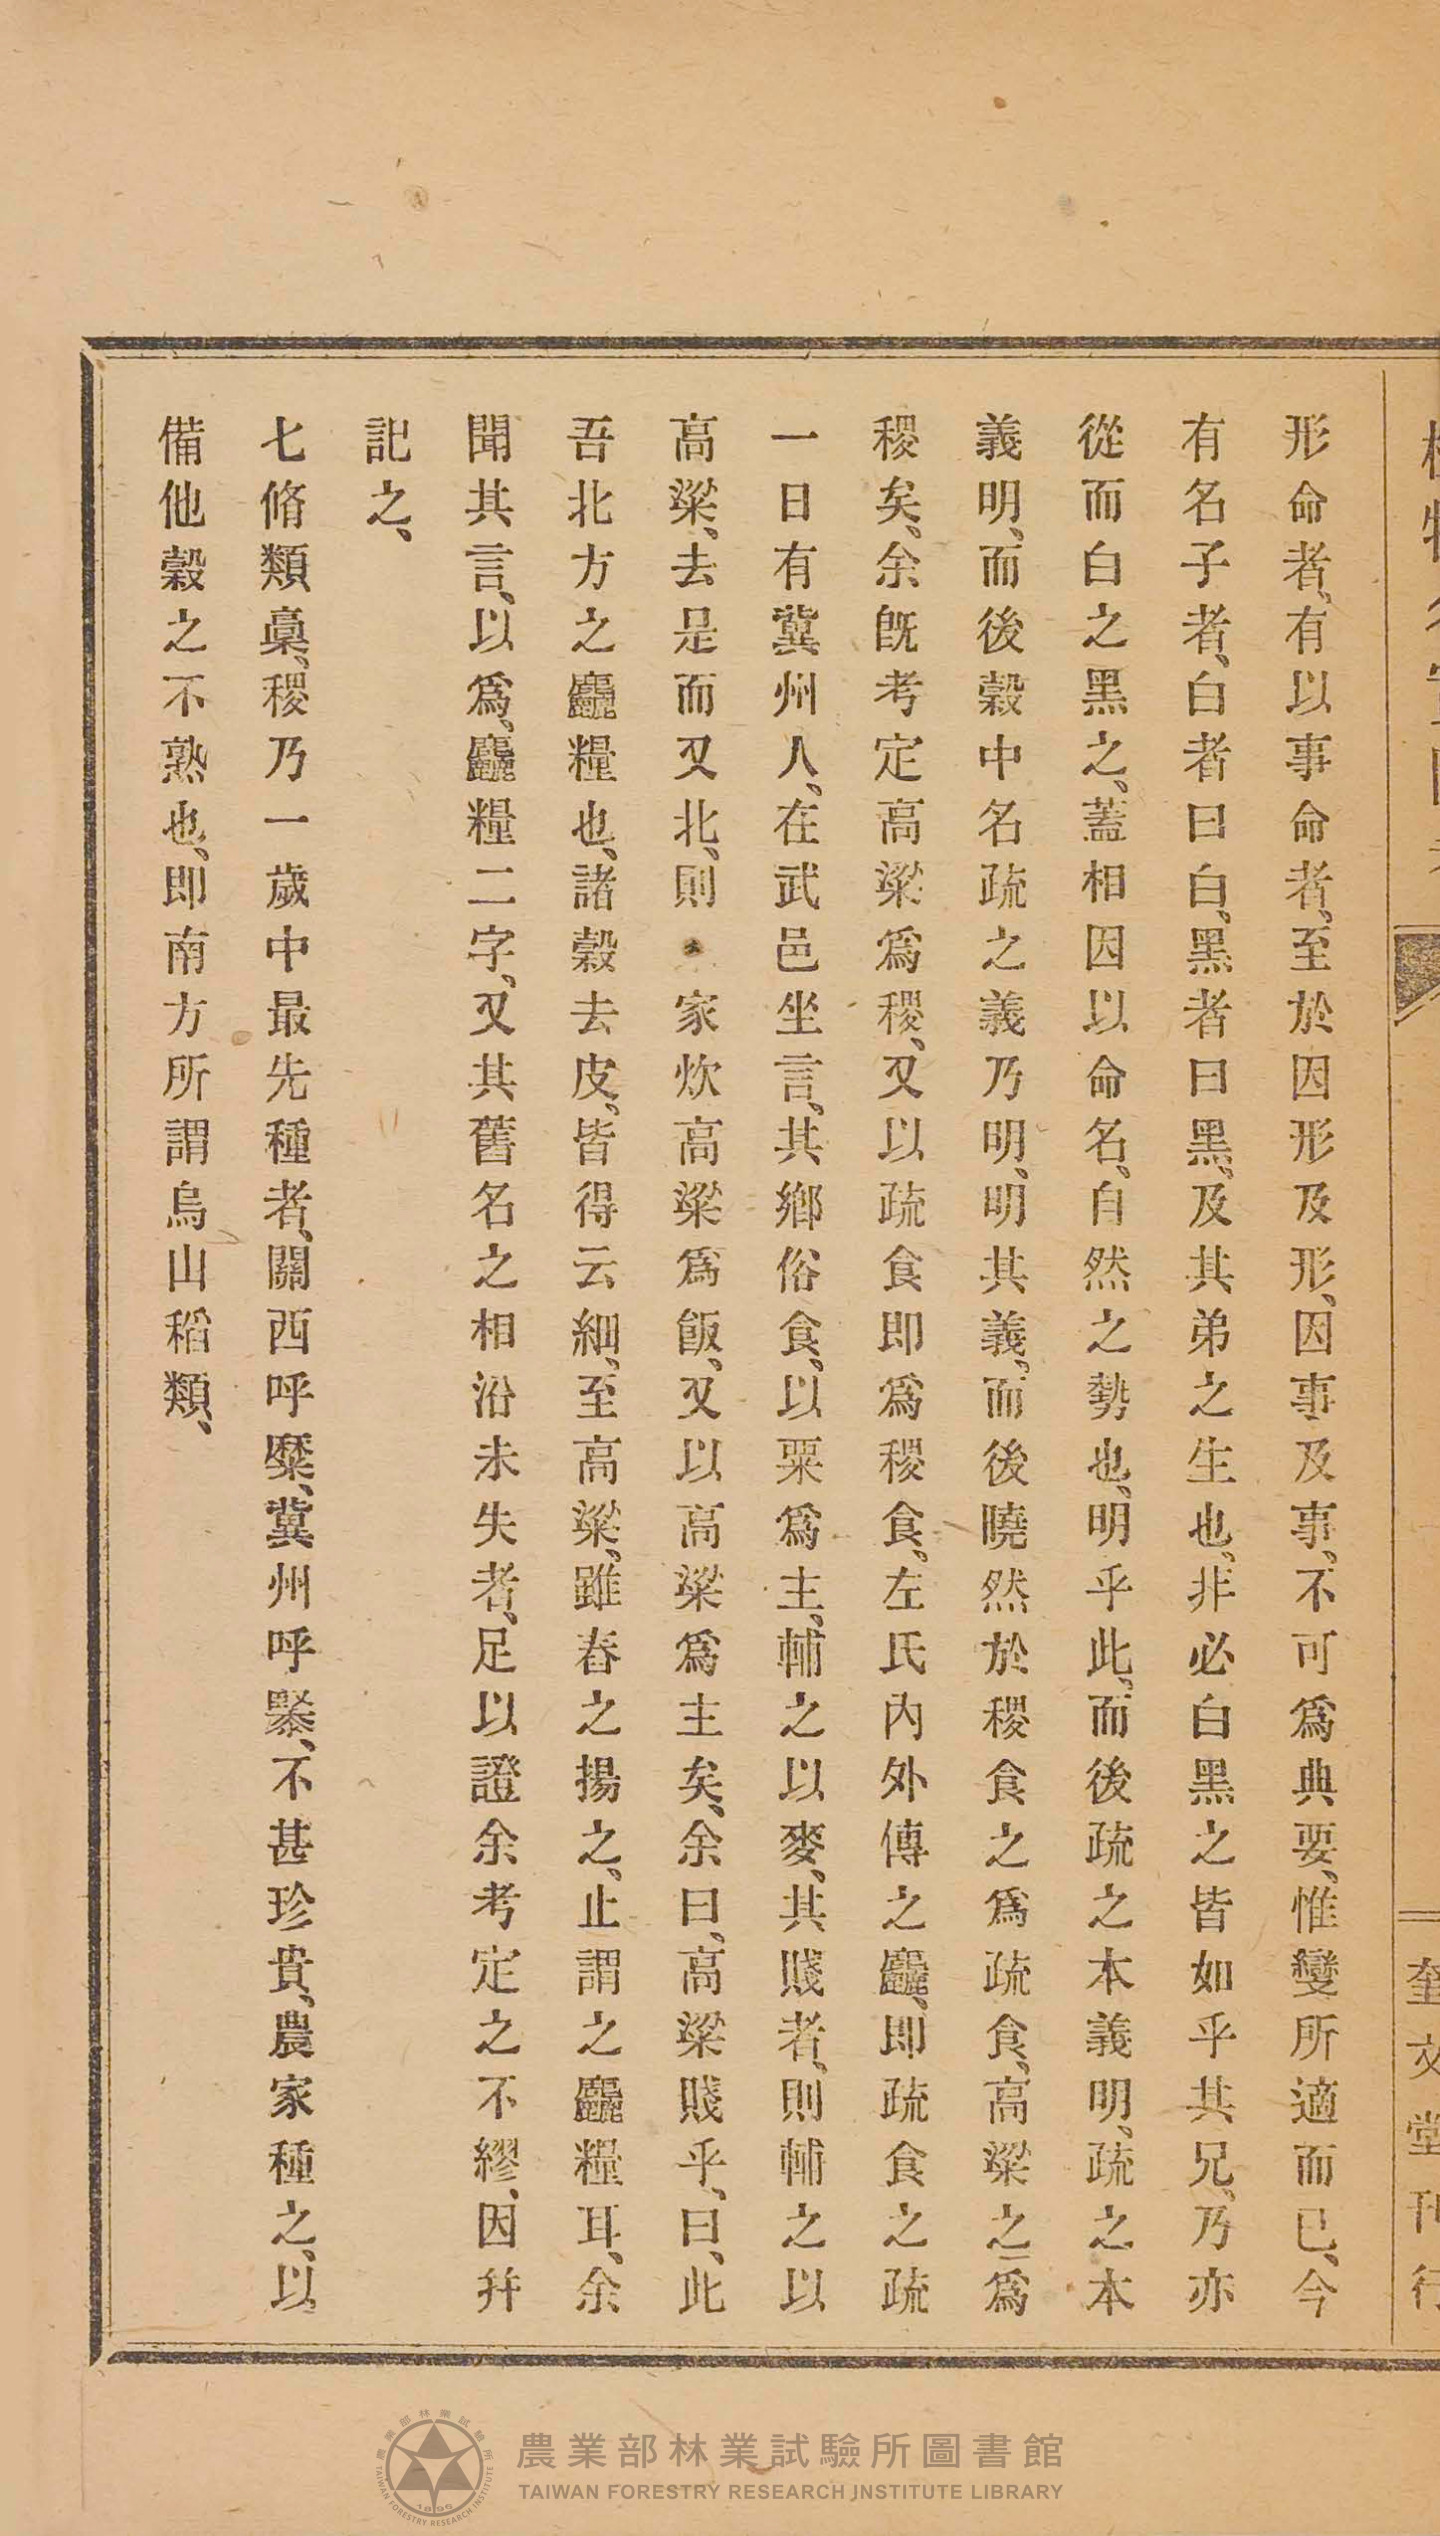 形命者、有以事命者、至於因形及形、因事及事、不可爲典要、惟變所適而已、今
有名子者、白者曰白、黑者曰黑、及其弟之生也、非必白黑之皆如乎其兄、乃亦
從而白之黑之、蓋相因以命名、自然之勢也、明乎此、而後疏之本義明、疏之本
義明、而後穀中名疏之義乃明、明其義、而後曉然於稷食之爲疏食、高粱之爲
稷矣、余既考定高粱爲稷、又以疏食即爲稷食、左氏內外傳之麤、即疏食之疏
一日有冀州人、在武邑坐言、其鄉俗食、以粟爲主、輔之以麥、其賤者、則輔之以
高粱、去是而又北、則家炊高粱爲飯、又以高粱爲主矣、余曰、高粱賤乎、曰、此
吾北方之麤糧也、諸穀去皮、皆得云細、至高粱、雖舂之揚之、止謂之麤糧耳、余
聞其言、以爲、麤糧二字、又其舊名之相沿未失者、足以證余考定之不繆、因幷
記之、
七脩類稾、稷乃一歲中最先種者、關西呼䊳、冀州呼𪐑、不甚珍貴、農家種之、以
備他穀之不熟也、即南方所謂烏山稻類、
奎文堂刊行
農業部林業試驗所圖書館
TAIWAN FORESTRY RESEARCH INSTITUTE LIBRARY